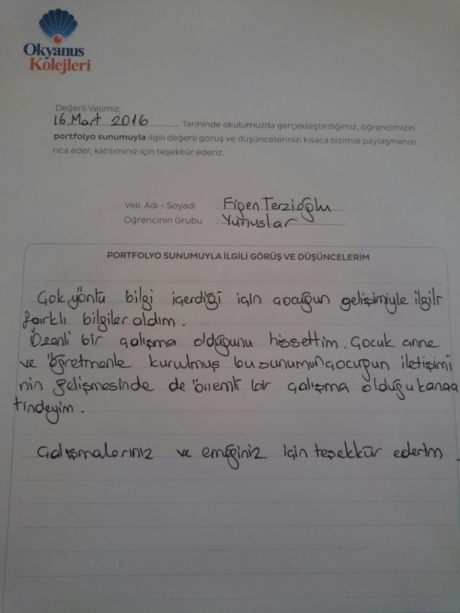 Okyanus
Kolejleri
Değerli Velimiz,
16 Mart 2016 Tarihinde okulumuzda gerçekleştirdiğimiz, öğrencimizin
portfolyo sunumuyla ilgili değerli görüş ve düşüncelerinizi kısaca bizimle paylaşmanızı
rica eder, katılımınız için teşekkür ederiz.
Veli Adı - Soyadı : Figen Terzioğlu
Öğrencinin Grubu : Yunuslar
PORTFOLYO SUNUMUYLA İLGİLİ GÖRÜŞ VE DÜŞÜNCELERİM
Çok yöntü bilgi içerdiği için çocuğun gelişimiyle ilgili
farklı bilgiler aldım.
Özenli bir çalışma olduğunu hissettim. Çocuk anne
ve öğretmenle kurulmuş bu sunumun çocuğun iletişimi
nin gelişmesinde de önemli bir çalışma olduğu kanaa
tindeyim.
Çalışmalarınız ve emeğiniz için teşekkür ederim